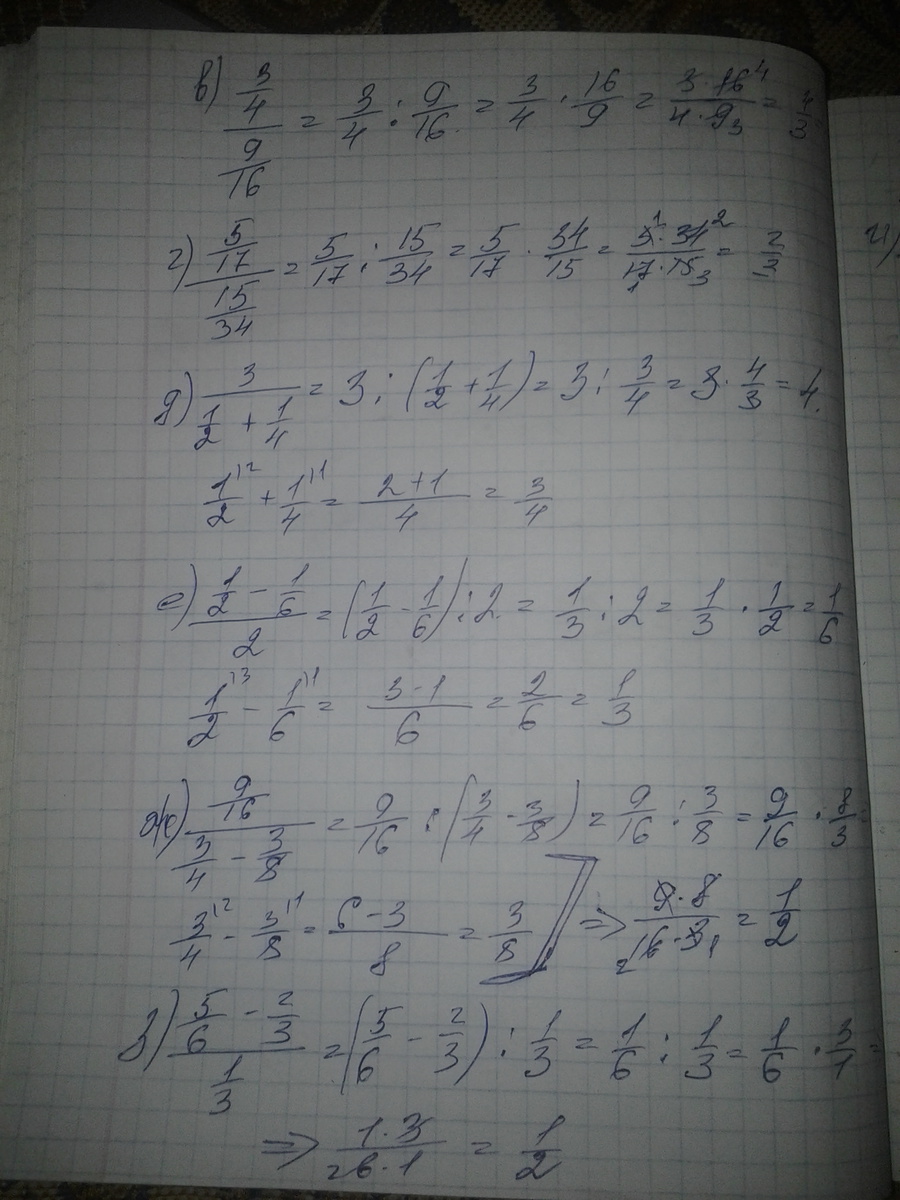 в) 3/4 / 9/16 = 3/4 : 9/16 = 3/4 · 16/9 = 3·16⁴/4·9₃ = 4/3
г) 5/17 / 15/34 = 5/17 : 15/34 = 5/17 · 34/15 = 5¹·34²/17₁·15₃ = 2/3
д) 3 / 1/2 + 1/4 = 3 : (1/2 + 1/4) = 3 : 3/4 = 3 · 4/3 = 4.
1/2⁾² + 1/4⁾¹ = 2+1/4 = 3/4
е) 1/2 - 1/6 / 2 = (1/2 - 1/6) : 2 = 1/3 : 2 = 1/3 · 1/2 = 1/6
1/2⁾³ - 1/6⁾¹ = 3-1/6 = 2/6 = 1/3
ж) 9/16 / 3/4 - 3/8 = 9/16 : (3/4 - 3/8) = 9/16 : 3/8 = 9/16 · 8/3 =
3/4⁾² - 3/8⁾¹ = 6-3/8 = 3/8 ⇒ 9·8/₂16·3₁ = 1/2
з) 5/6 - 2/3 / 1/3 = (5/6 - 2/3) : 1/3 = 1/6 : 1/3 = 1/6 · 3/1 =
⇒ 1·3/₂6·1 = 1/2